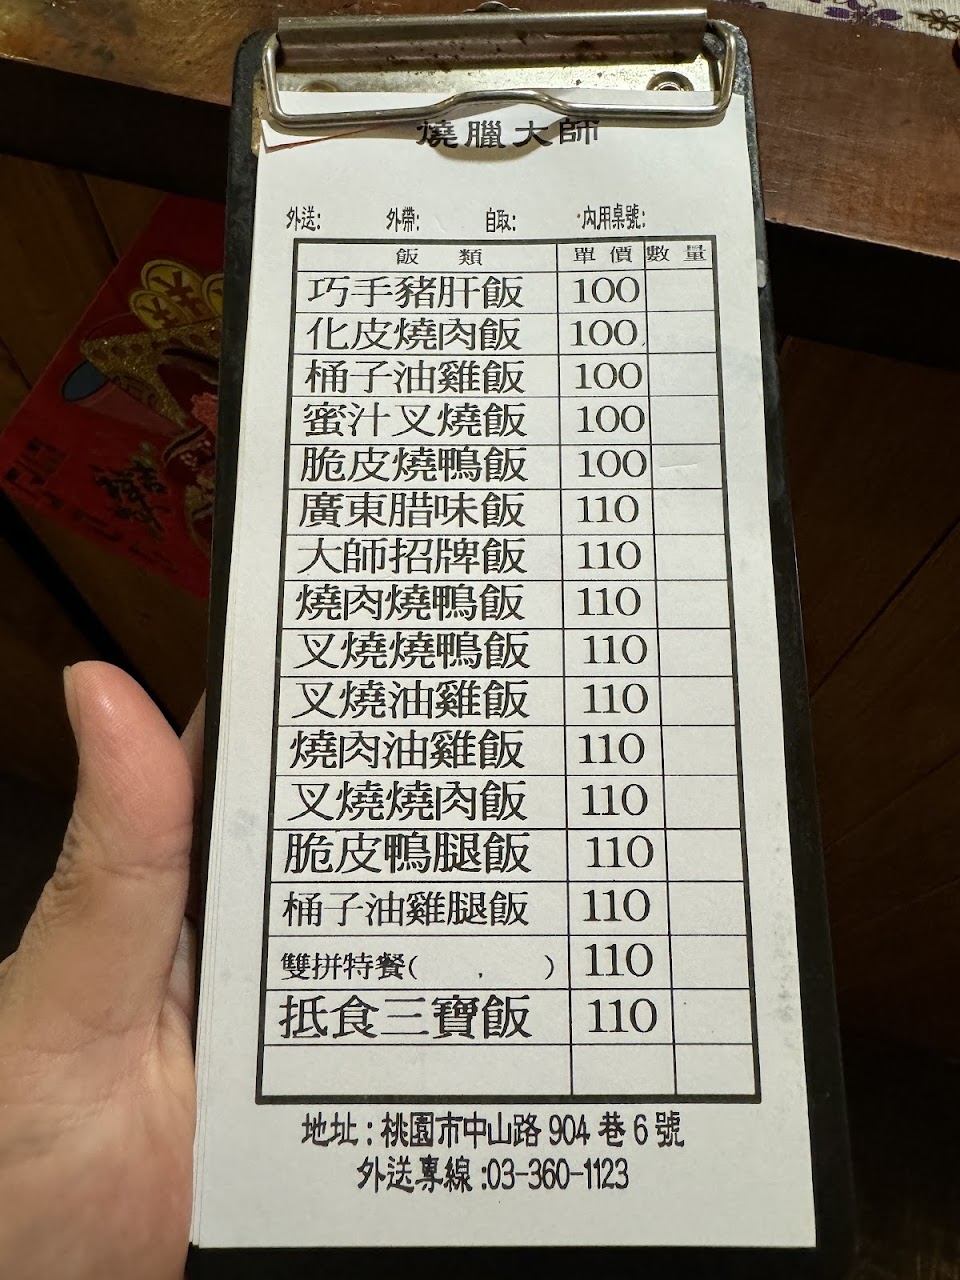 燒臘大師
外送: 外帶: 自取: 內用桌號:
飯類 單價 數量
巧手豬肝飯 100
化皮燒肉飯 100
桶子油雞飯 100
蜜汁叉燒飯 100
脆皮燒鴨飯 100
廣東腊味飯 110
大師招牌飯 110
燒肉燒鴨飯 110
叉燒燒鴨飯 110
叉燒油雞飯 110
燒肉油雞飯 110
叉燒燒肉飯 110
脆皮鴨腿飯 110
桶子油雞腿飯 110
雙拼特餐( , ) 110
抵食三寶飯 110
地址:桃園市中山路904巷6號
外送專線:03-360-1123